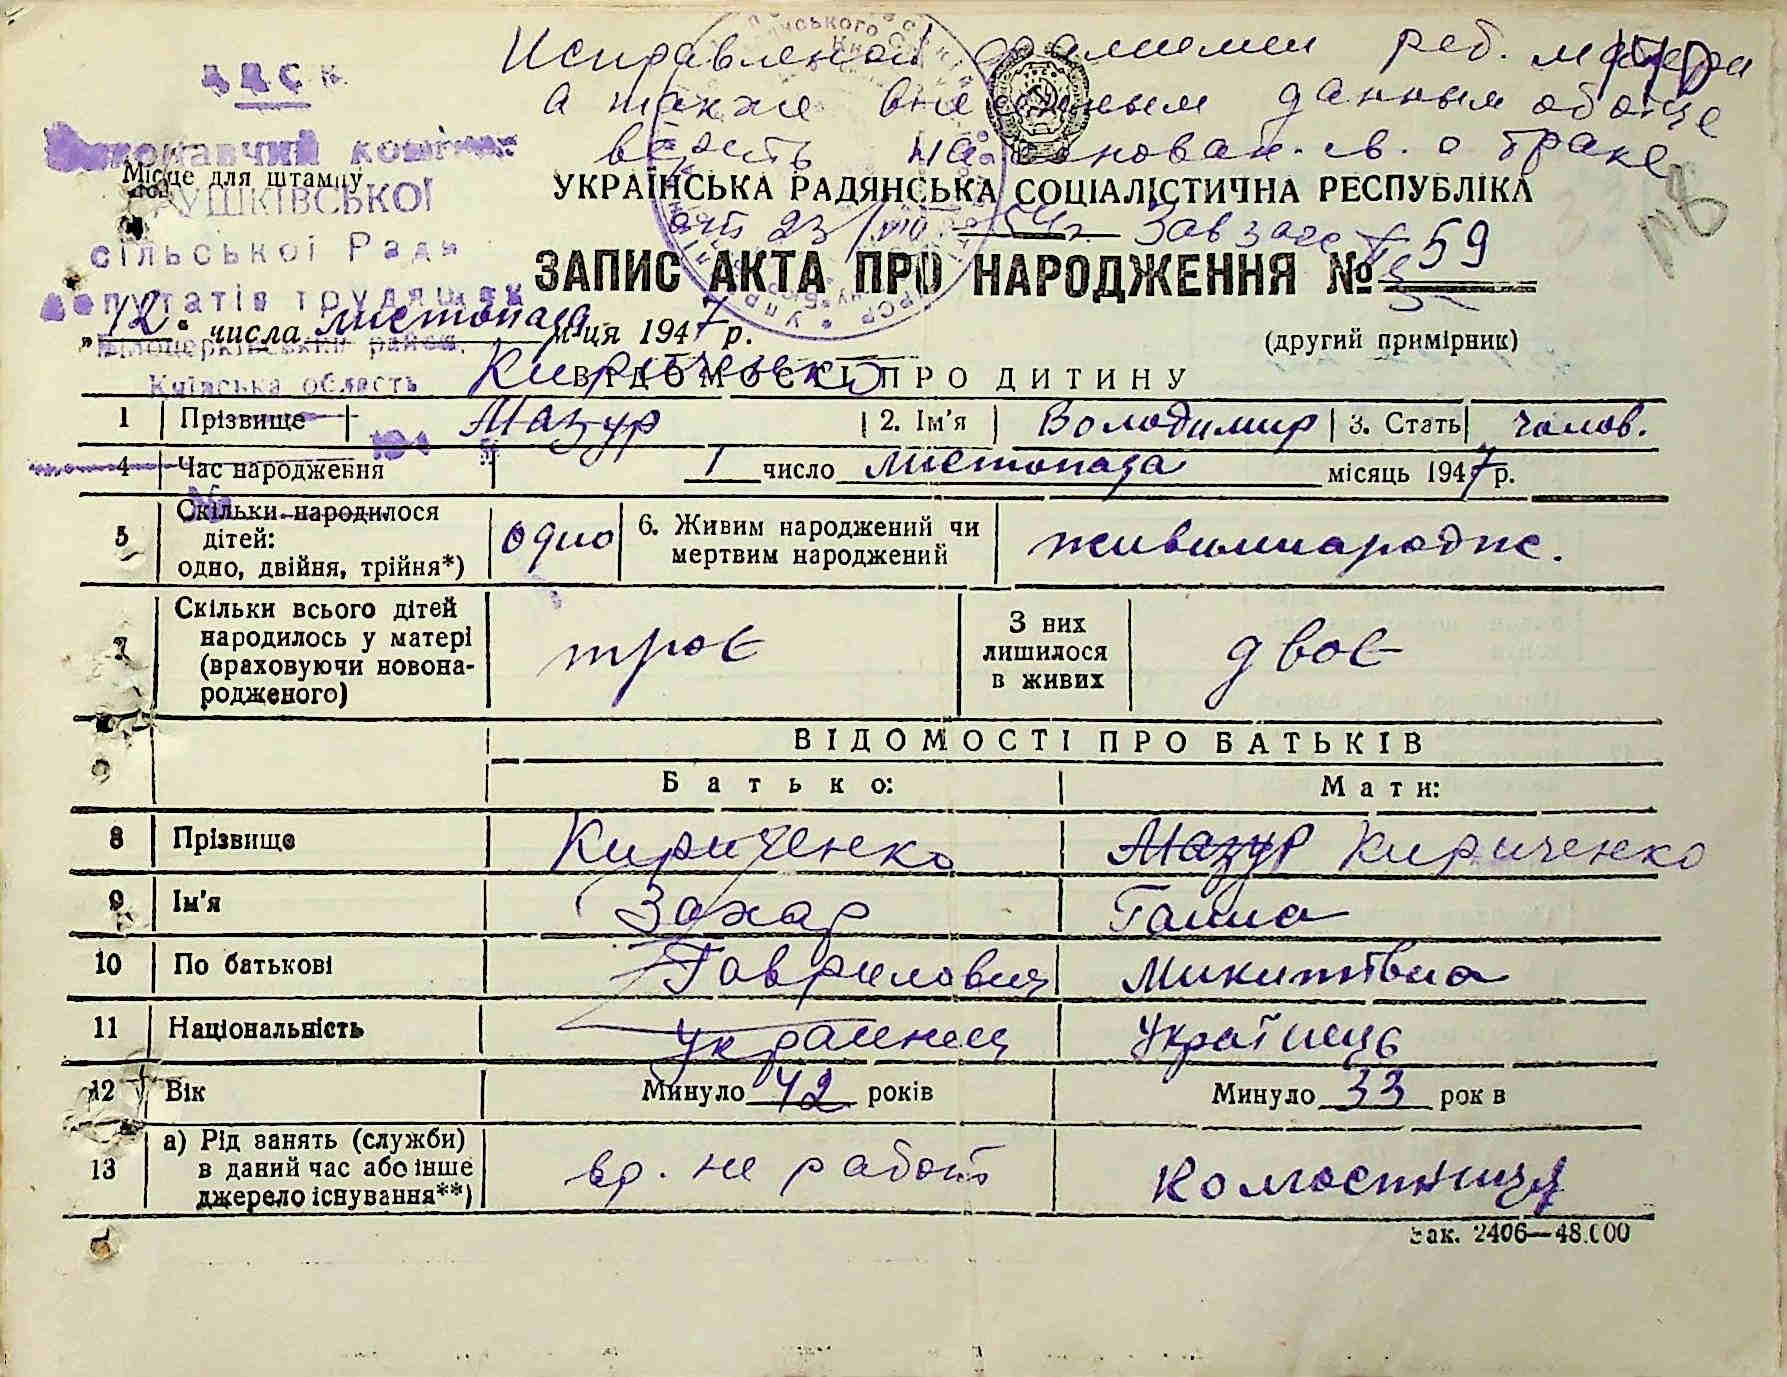 Исправленой фамилии реб. матери
а также внесенным данным об отце
верить на основан. св. о браке
У.Р.С.Р.
Виконавчий комітет
Місце для штампу
УКРАЇНСЬКА РАДЯНСЬКА СОЦІАЛІСТИЧНА РЕСПУБЛІКА
УШКІВСЬКОЇ
от 23/VIII 54 г. Зав загс
сільської Ради
ЗАПИС АКТА ПРО НАРОДЖЕННЯ № 59
депутатів трудящих
„12“ числа листопада м-ця 1947 р.
(другий примірник)
Білоцерківський район
Київська область
Кириченко
ВІДОМОСТІ ПРО ДИТИНУ
1 Прізвище Мазур 2. Ім'я Володимир 3. Стать чолов.
4 Час народження 1 число листопада місяць 1947 р.
5 Скільки народилося дітей: одно, двійня, трійня*) одно 6. Живим народжений чи мертвим народжений живимнародже.
7 Скільки всього дітей народилось у матері (враховуючи новонародженого) троє З них лишилося в живих двоє
ВІДОМОСТІ ПРО БАТЬКІВ
Батько: Мати:
8 Прізвище Кириченко Мазур Кириченко
9 Ім'я Захар Ганна
10 По батькові Гаврилович Микитівна
11 Національність украинец Українець
12 Вік Минуло 42 років Минуло 33 рок в
13 а) Рід занять (служби) в даний час або інше джерело існування**) вр. не работ Колгоспниця
Зак. 2406—48.000